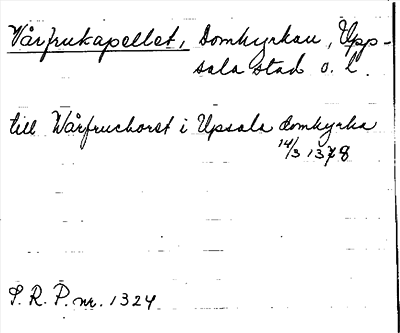 Vårfrukapellet, Domkyrkan, Upp-
sala stad o. L.
till Wårfruchoret i Upsala domkyrka
14/3 1378
S. R. P. nr. 1324